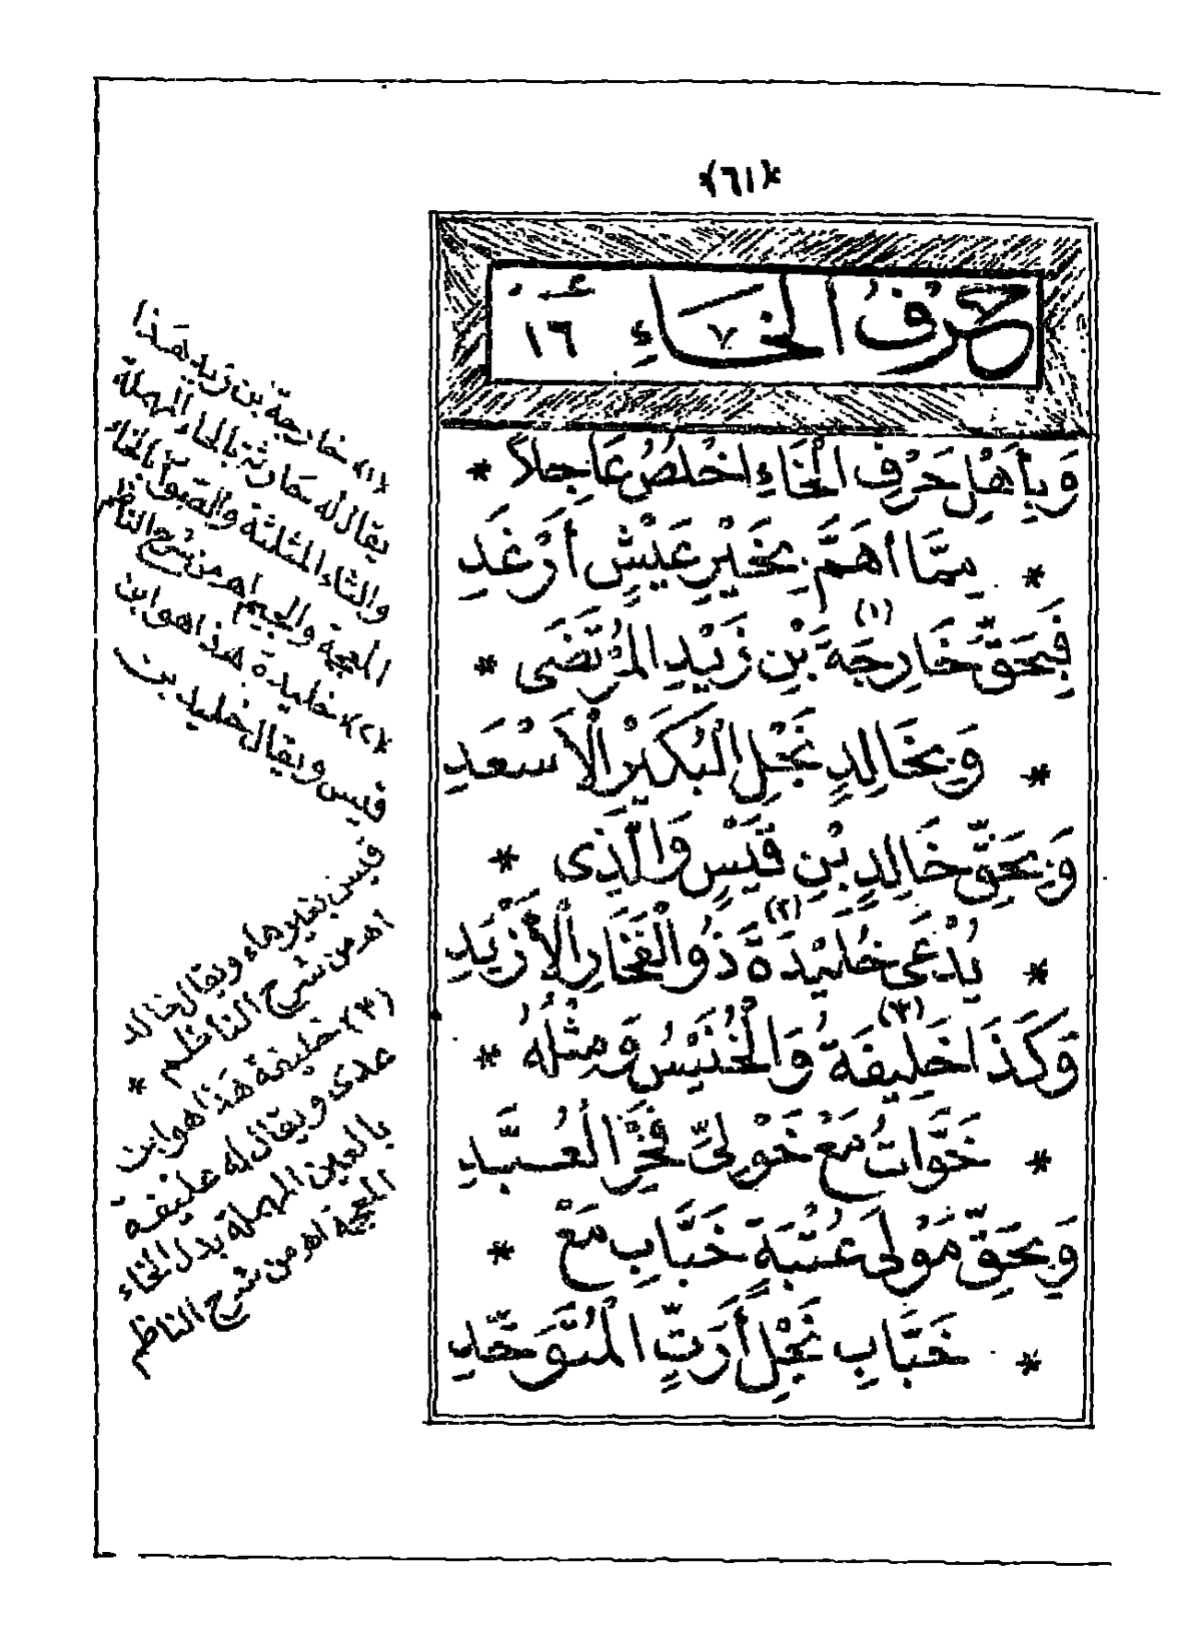 ﴿٦١﴾
حَرْفُ الْخَاءِ ١٦
وَبِأَهْلِ حَرْفِ الْخَاءِ اخْلُصُ عَاجِلاً *
* مِمَّا أَهَمَّ بِخَيْرِ عَيْشٍ أَرْغَدِ
فَبِحَقِّ خَارِجَةَ (١) بْنِ زَيْدِ الْمُرْتَضَى *
* وَبِخَالِدٍ نَجْلِ الْبُكَيْرِ الْأَسْعَدِ
وَبِحَقِّ خَالِدِ بْنِ قَيْسٍ وَالَّذِى *
* يُدْعَى خُلَيْدَةَ (٢) ذُو الْفَخَارِ الْأَزْيَدِ
وَكَذَا خَلِيفَةُ (٣) وَالْخُنَيْسُ وَمِثْلُهُ *
* خَوَّاتُ مَعْ خَوْلِىِّ فَخْرِ الْعُبَّدِ
وَبِحَقِّ مَوْلَى عُتْبَةٍ خَبَّابِ مَعْ *
* خَبَّابِ نَجْلِ أَرَتٍّ الْمُتَوَحِّدِ
(١) خارجة بن زيد هذا
يقال له حارثة بالحاء المهملة
والثاء المثلثة والصواب بالخاء
المعجمة والجيم اهـ من شرح الناظم
(٢) خليدة هذا هو ابن
قيس ويقال خليد بن
قيس بغير هاء ويقال خالد
اهـ من شرح الناظم *
(٣) خليفة هذا هو ابن
عدى ويقال له عليفة
بالعين المهملة بدل الخاء
المعجمة اهـ من شرح الناظم